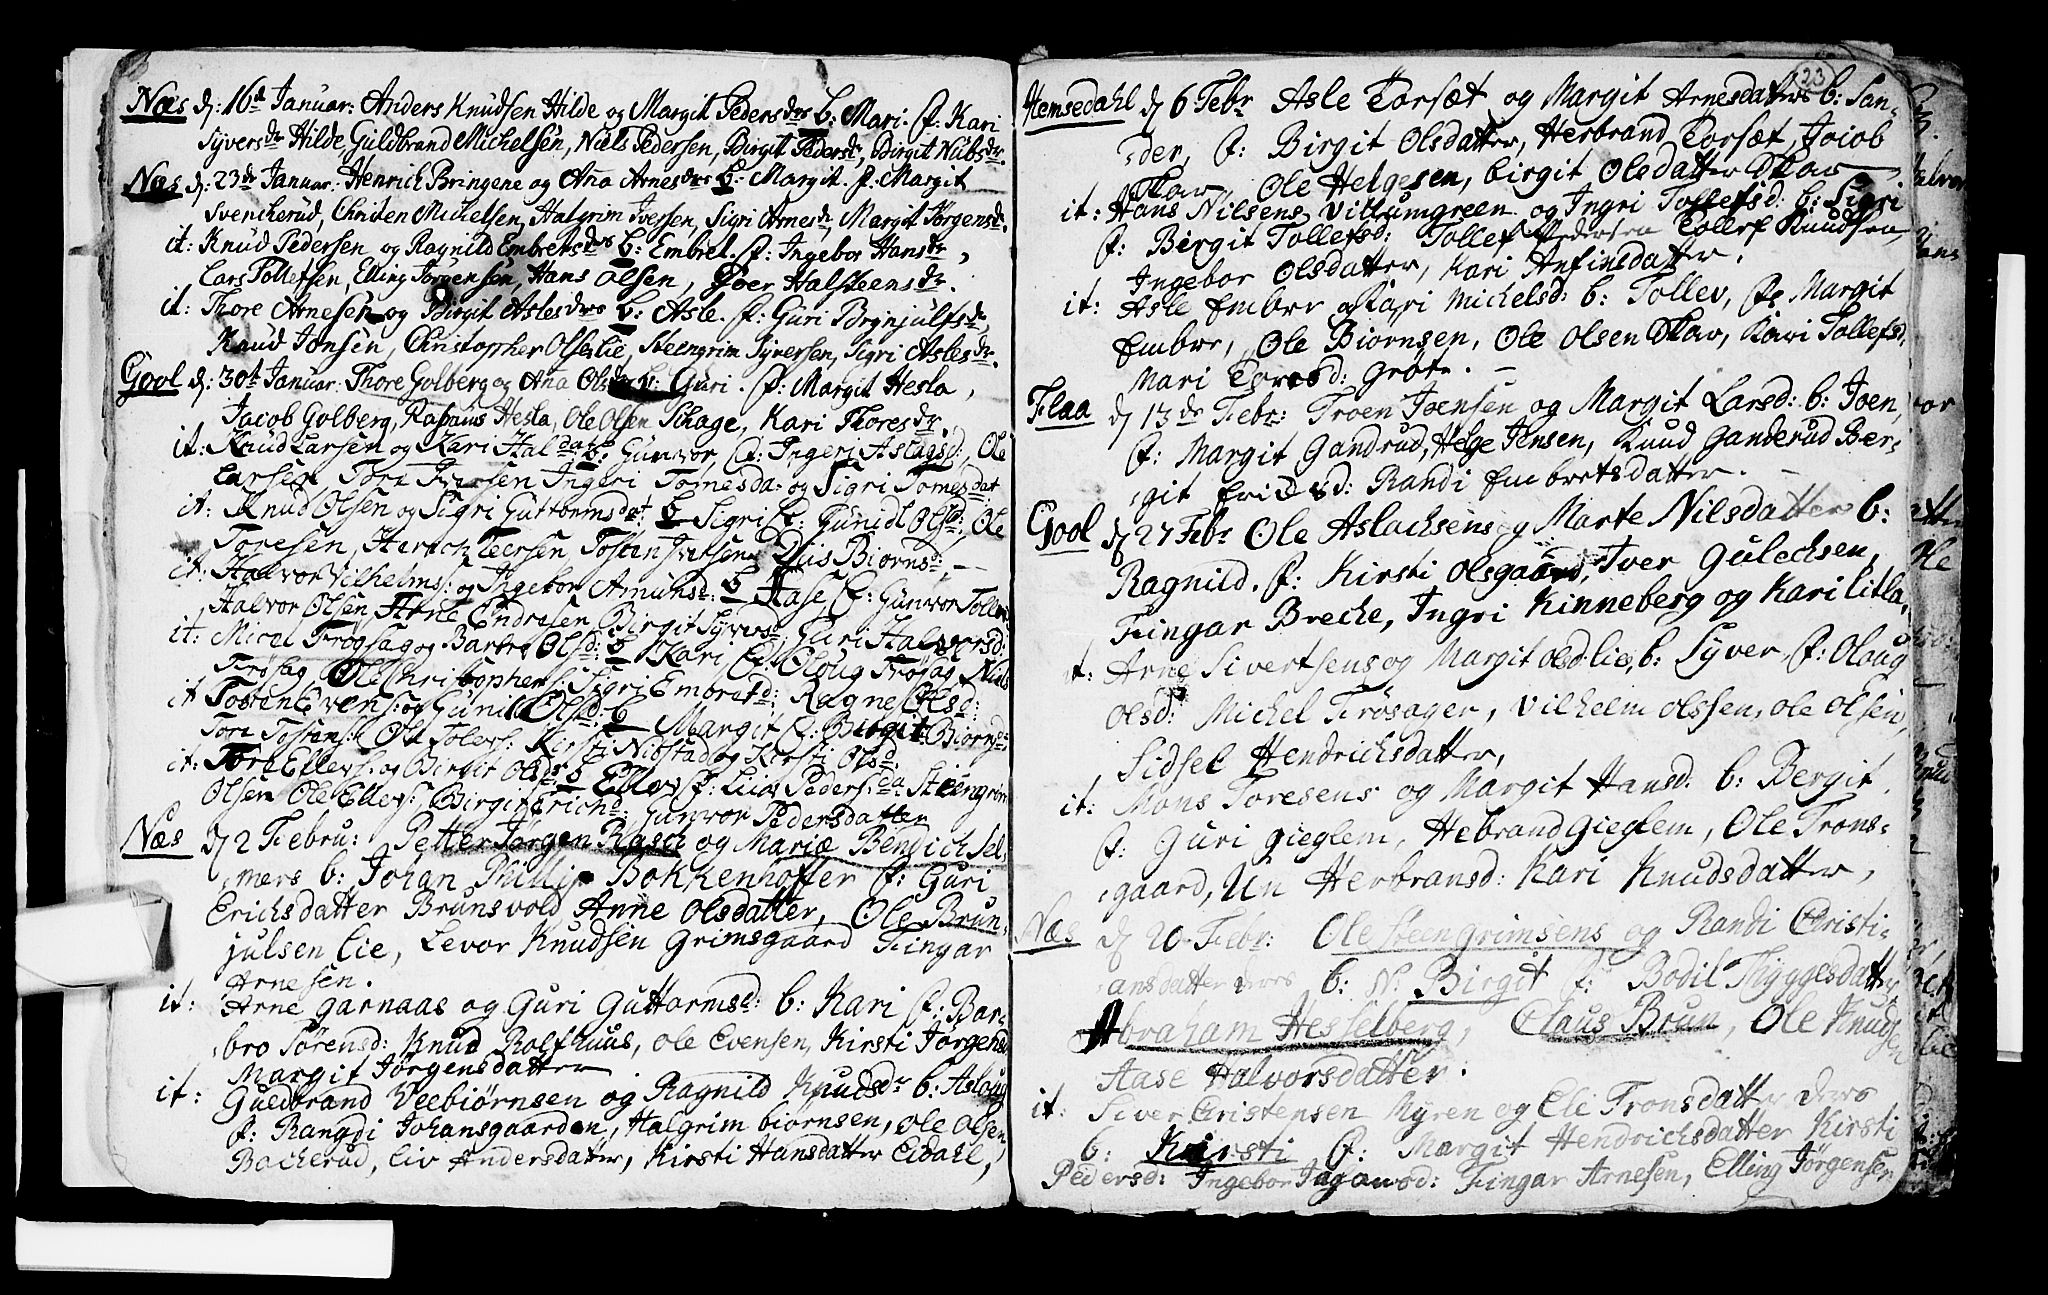 Næs d: 16d Januar: Anders Knudsen Hilde og Margit Pedersdrs b: Mari. f: Kari
Syversdr Hilde, Guldbrand Michelsen, Niels Pedersen, Birgit Pedersdr, Birgit Nubsdr.
Næs d: 23de Januar: Henrich Bringene og Ana Arnesdrs b: Margit. f: Margit
Svenckerud, Christen Michelsen, Halgrim Iversen, Sigri Arnesdr, Margit Jørgensdr.
it: Knud Pedersen og Ragnild Embretsdrs b: Embret. f: Ingebor Hansdr,
Lars Tollefsen, Elling Jørgensen, Hans Olsen, Goer Halsteensdr.
it: Thore Arnesen og Birgit Aslesdrs b: Asle. f: Guri Brynjulfsdr,
Knud Jonsen, Christopher Olsen lie, Steengrim Syversen, Sigri Aslesdr.
Gool d: 30t Januar: Thore Golberg og Ana Olsdrs b: Guri. f: Margit Hesla,
Jacob Golberg, Rasmus Hesla, Ole Olsen Skage, Kari Thoresdr.
it: Knud Larsen og Kari Hal datr b: Gunvor, f: Ingeri Aslagsd:, Ole
Larsen, Tore Iversen Ingeri Tomesda: og Sigri Tomesdat
it: Knud Olsen og Sigri Guttormsdat b Sigri f: Gunild Olsd: Ole
Toresen, Henrich Teersen Tosten Iversen Biorns: —
it: Halvor Vilhelms: og Ingebor Amunsd: b Aase f: Gunvor Tollevs
Halvor Olsen, Arne Endresen Birgit Syversd: Guri Halversd:
it: Micel Frøgsag og Barbro Olsd: b Kari f: Oloug Frøsag Niels
Frøsag Ole Christophers: Sigri Embretsd: Ragne Olsd:
it Tosten Evens: og Gunild Olsd: b Margit f: Birgit Biornsd
Tore Tostens: Ole Tolevs: Kirsti Nibstad og Kersti Olsd:
it: Tore Ellevs: og Birgit Olsd b Ellev f: Liva Peders:da Steengrim
Olsen Ole Ellevs: Birgit Erichsd: Gunvor Pedersdatter
Næs d 2 Februa: Petter Jørgen Rasch og Mariæ Bendich Sel-
mers b: Johan Phillip Bokkenhoffer f: Guri
Erichsdatter Brunsvold, Anne Olsdatter, Ole Brun-
julsen Lie, Levor Knudsen Grimsgaard Fingar
Arnesen.
it: Arne Garnaas og Guri Guttormsd: b: Kari f: Bar-
bro Sørensd: Knud Rolfhuus, Ole Evensen, Kirsti Jørgensd
Margit Jørgensdatter
it: Guldbrand Veebiørnsen og Ragnild Knudsdr b: Asloug
f: Rangdi Johansgaarden, Halgrim biørnsen, Ole Olsen
Bacherud, Liv Andersdatter, Kirsti Hansdatter Eidahl,
23
Hemsedahl d 6 Febr Asle Torsæt og Margit Arnesdatters b: San-
der, f: Birgit Olsdatter, Herbrand Torsæt, Jacob
Skav, Ole Helgesen, birgit Olsdatter Skav
it: Hans Nilsens Villumgreen og Ingri Tollefsd: b: Sigri
f: Birgit Tollefsd: Tollef Pedersen Tollef Knudsen,
Ingebor Olsdatter, Kari Anfinsdatter.
it: Asle Embre og Kari Michelsd: b: Tollev, f: Margit
Embre, Ole Biørnsen, Ole Olsen Skav, Kari Tollefsd,
Mari Toresd: Grøte. —
Flaa d 13de Febr: Troen Joensen og Margit Larsd: b: Joen,
f: Margit Gandrud, Helge Jensen, Knud Ganderud Ber-
git Erichsd: Randi Embretsdatter. —
Gool d 27 Febr Ole Aslachsens og Marte Nilsdatter b:
Ragnild. f: Kirsti Olsgaard, Iver Gulechsen,
Fingar Breche, Ingri Kinneberg og Kari Litla.
it: Arne Sivertsens og Margit Olsd: lie, b: Syver, f: Oloug
Olsd: Michel Frøsager, Vilhelm Olssen, Ole Olsen,
Sidsel Hendrichsdatter,
it: Mons Toresens og Margit Hansd: b: Bergit,
f: Guri Gieglem, Hebrand Gieglem, Ole Trons-
gaard, Un Herbransd: Kari Knudsdatter,
Næs d 20 Febr: Ole Steengrimsens og Randi Christi-
ansdatter ders b: N: Birgit f: Bodil Thyggesdatter
Abraham Hesselberg, Claus Brun, Ole Knudsen
Aase Halvorsdatter.
it: Siver Christensen Myren og Eli Tronsdatter ders
b: Kirsti f: Margit Hendrichsdatter Kirsti
Pedersd: Ingebor Fingar Arnesen, Elling Jørgensen